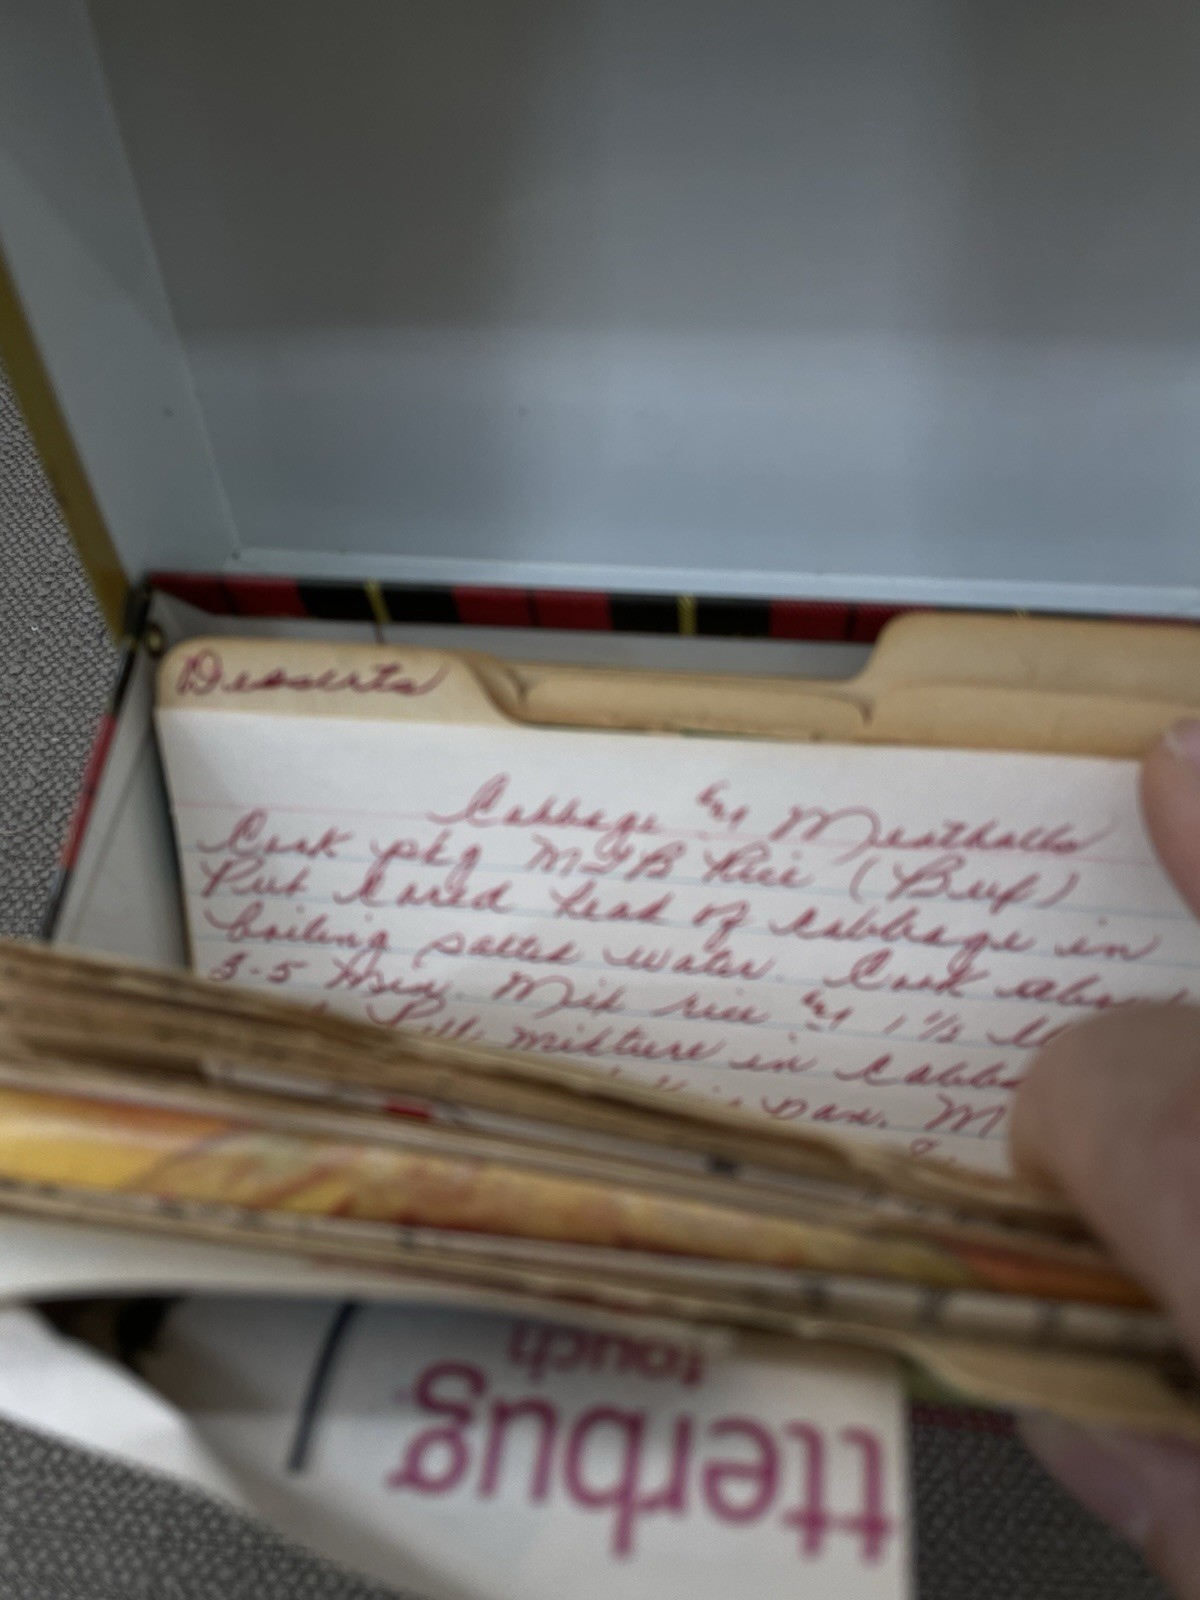 Desserts
Cabbage & Meatballs
Cook pkg MJB Rice (Beef)
Put Cored head of cabbage in
boiling salted water. Cook
3-5 Min. Mix rice & 1 1/2
mixture in
pan.
touch
tterbug